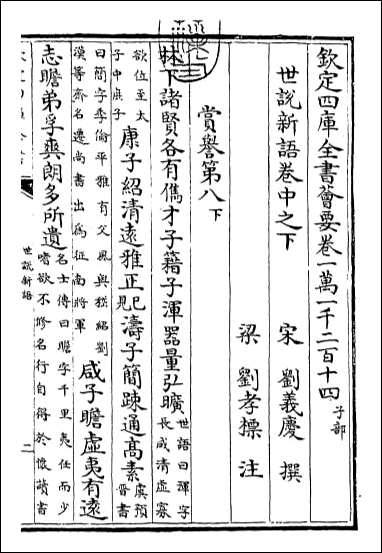 欽定四庫全書薈要卷一萬一千二百十四 子部
世說新語卷中之下
宋 劉義慶 撰
梁 劉孝標 注
賞譽第八下
林下諸賢各有儁才子籍子渾器量弘曠 世語曰渾字長成清虛寡
欲位至太子中庶子 康子紹清遠雅正 已見 濤子簡疎通高素 虞預晉書
曰簡字季倫平雅有父風與嵇紹劉漠等齊名遷尚書出為征南將軍 咸子瞻虛夷有遠
志瞻弟孚爽朗多所遺 名士傳曰瞻字千里夷任而少嗜欲不修名行自得於懷讀書
世說新語 二